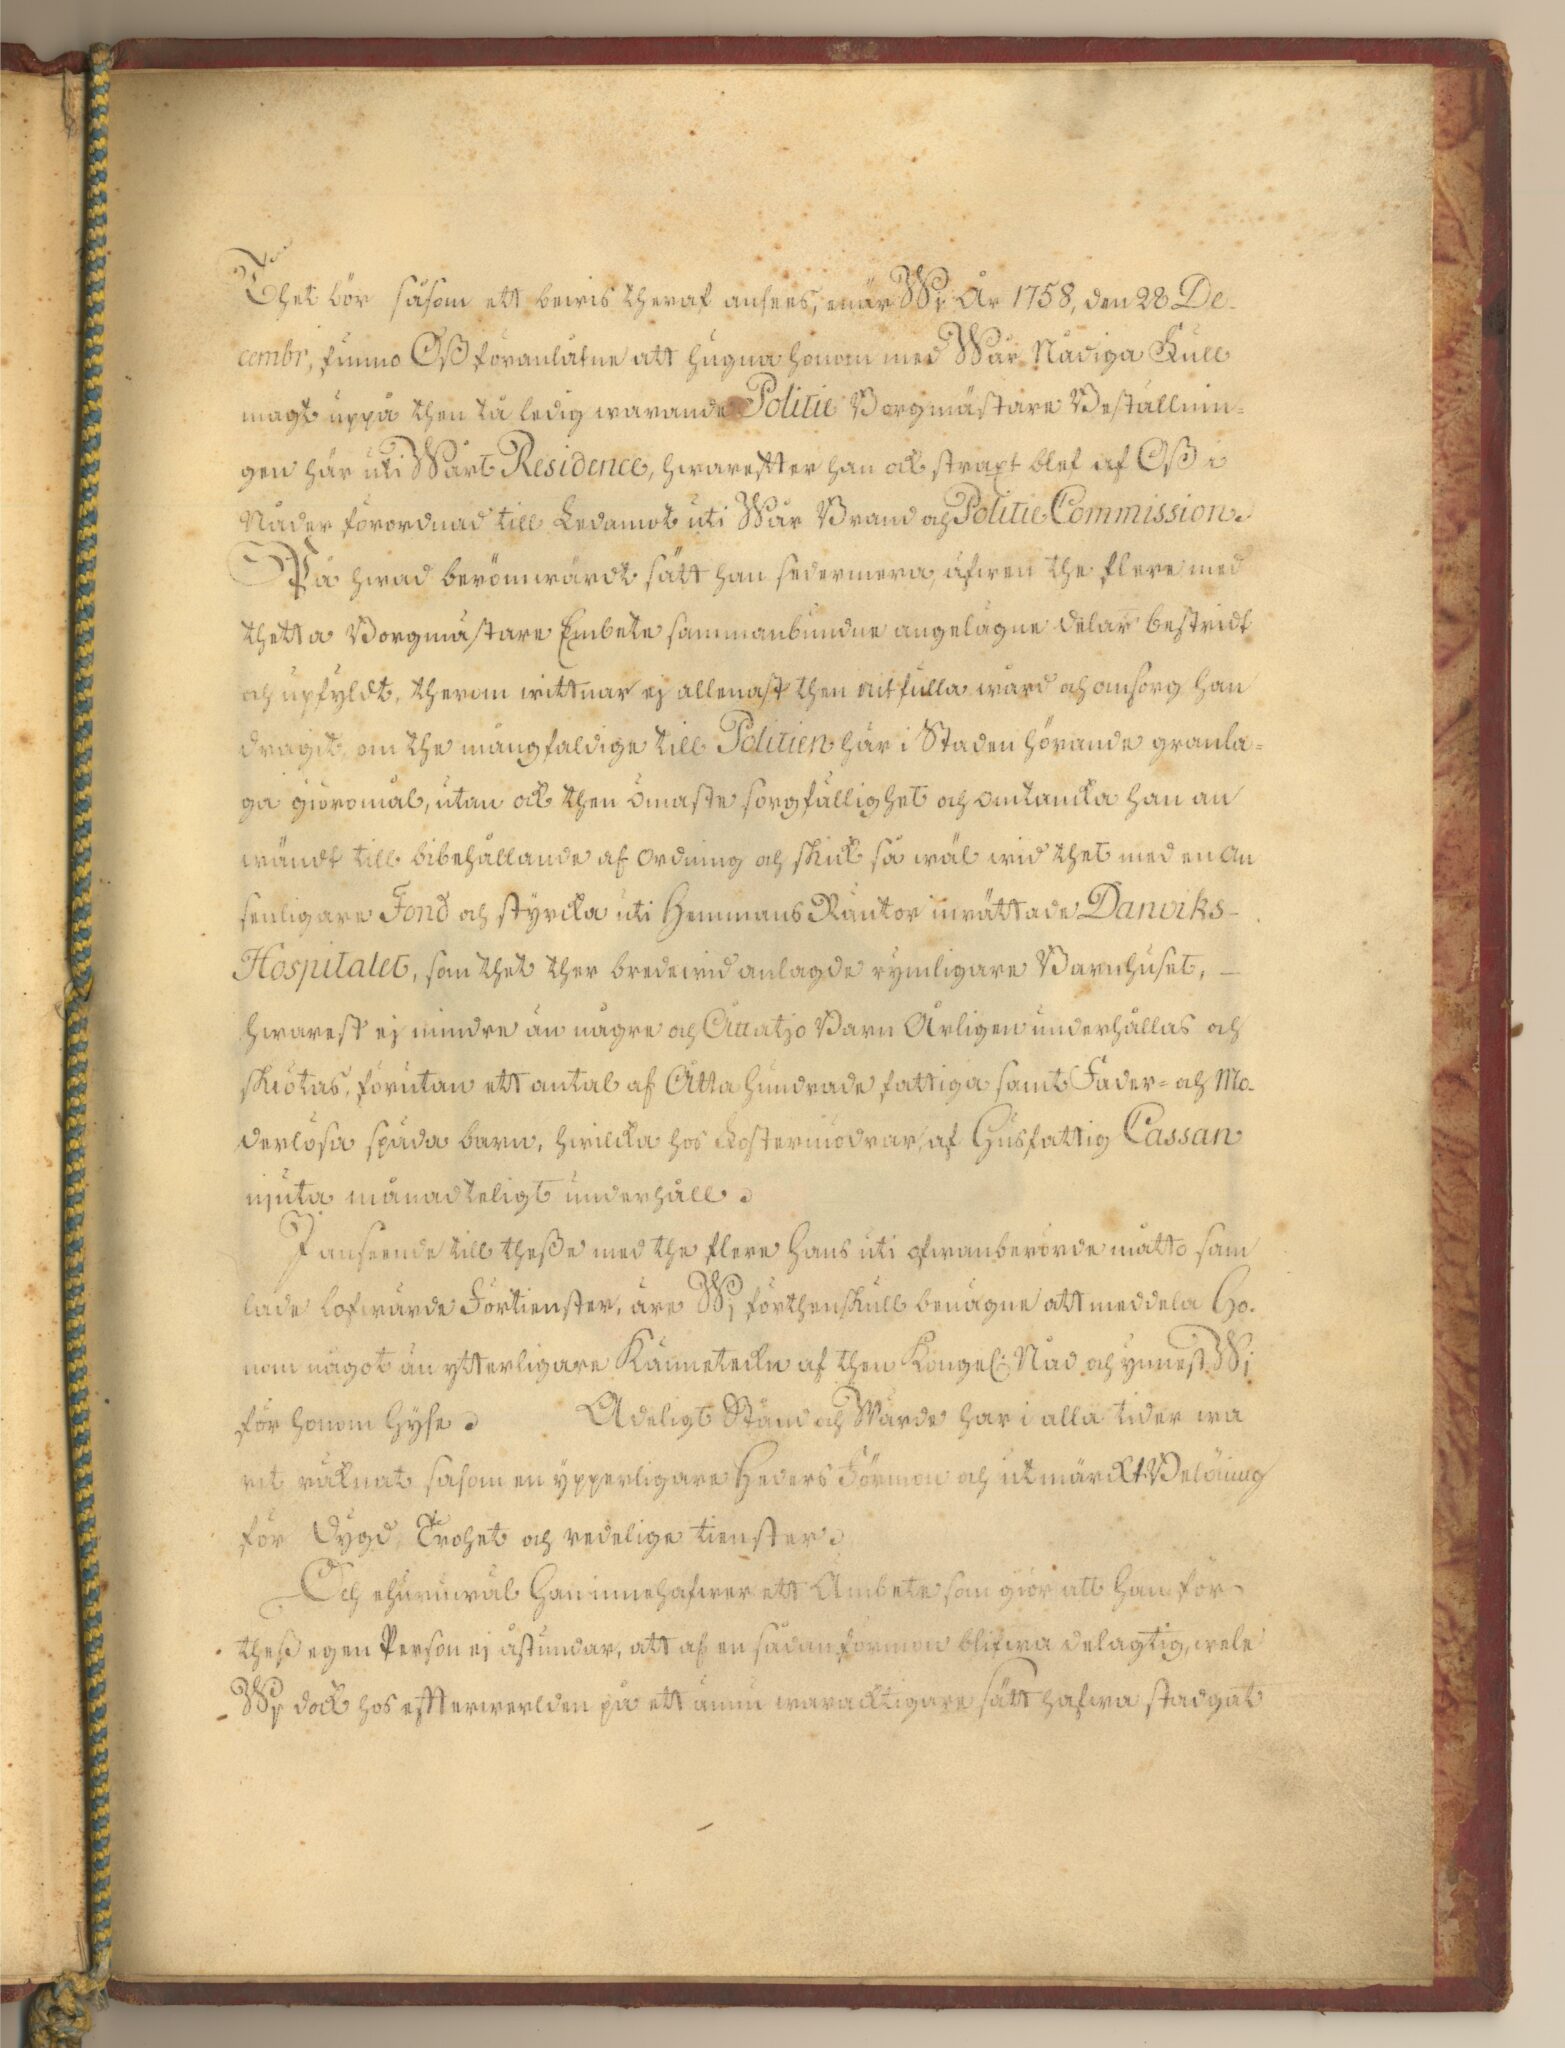 Thet bör såsom ett bewis theraf ansees, enär Wij År 1758, den 28 De-
cembr, funno Oß föranlåtne att hugna honom med Wår Nådiga Full
magt uppå then tå ledig warande Politie Borgmästare Beställnin-
gen här uti Wårt Residence, hwareftter han ock straxt blef af Oß i
Nåder förordnad till Ledamot uti Wår Brand och Politie Commission.
På hwad berömwärdt sätt han sedermera, äfwen the flere med
thetta Borgmästare Embete sammanbundne angelägne delar bestridt
och upfyldt, therom wittnar ej allenast then nitfulla wård och omsorg han
dragit om the mångfaldige till Politien här i Staden hörande granla-
ga giöromål, utan ock then ömaste sorgfällighet och omtancka han an
wändt till bibehållande af ordning och skick så wäl wid thet med en an
senligare Fond och styrcka uti Hemmans Räntor inrättade Danviks-
Hospitalet, som thet ther bredewid anlagde rymligare Barnhuset, –
hwarest ej mindre än någre och Åttatjo Barn Årligen underhållas och
skiötas, förutan ett antal af Åtta hundrade fattiga samt Fader- och Mo-
derlösa späda barn, hwilcka hos Fostermödrar, af Husfattig Cassan
njuta månadteligt underhåll.
I anseende till theße med the flere Hans uti ofwanberörde måtto sam
lade lofwärde Förtienster, äre Wij förthenskull benägne att meddela Ho-
nom något än ytterligare Känneteckn af then Kongel: Nåd och ynnest Wij
för honom hyse. Adeligt Stånd och Wärde har i alla tider wa
rit räknat såsom en ypperligare Heders Förmon och utmärckt Belöning
för Dygd, Trohet och redelige tienster.
Och ehuruwäl Han innehafwer ett Ämbete som giör att Han för
theß egen Person ej åstundar, att af en sådan förmon blifwa delagtig, wele
Wij dock hos eftterwerlden på ett ännu waracktigare sätt hafwa stadgat